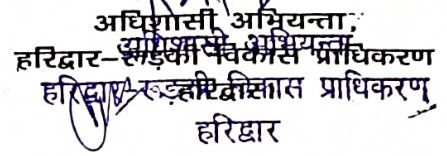 अधिशासी अभियन्ता,
हरिद्वार-रूड़की विकास प्राधिकरण
अधिशासी अभियन्ता
हरिद्वार-रूड़की विकास प्राधिकरण
हरिद्वार
हरिद्वार